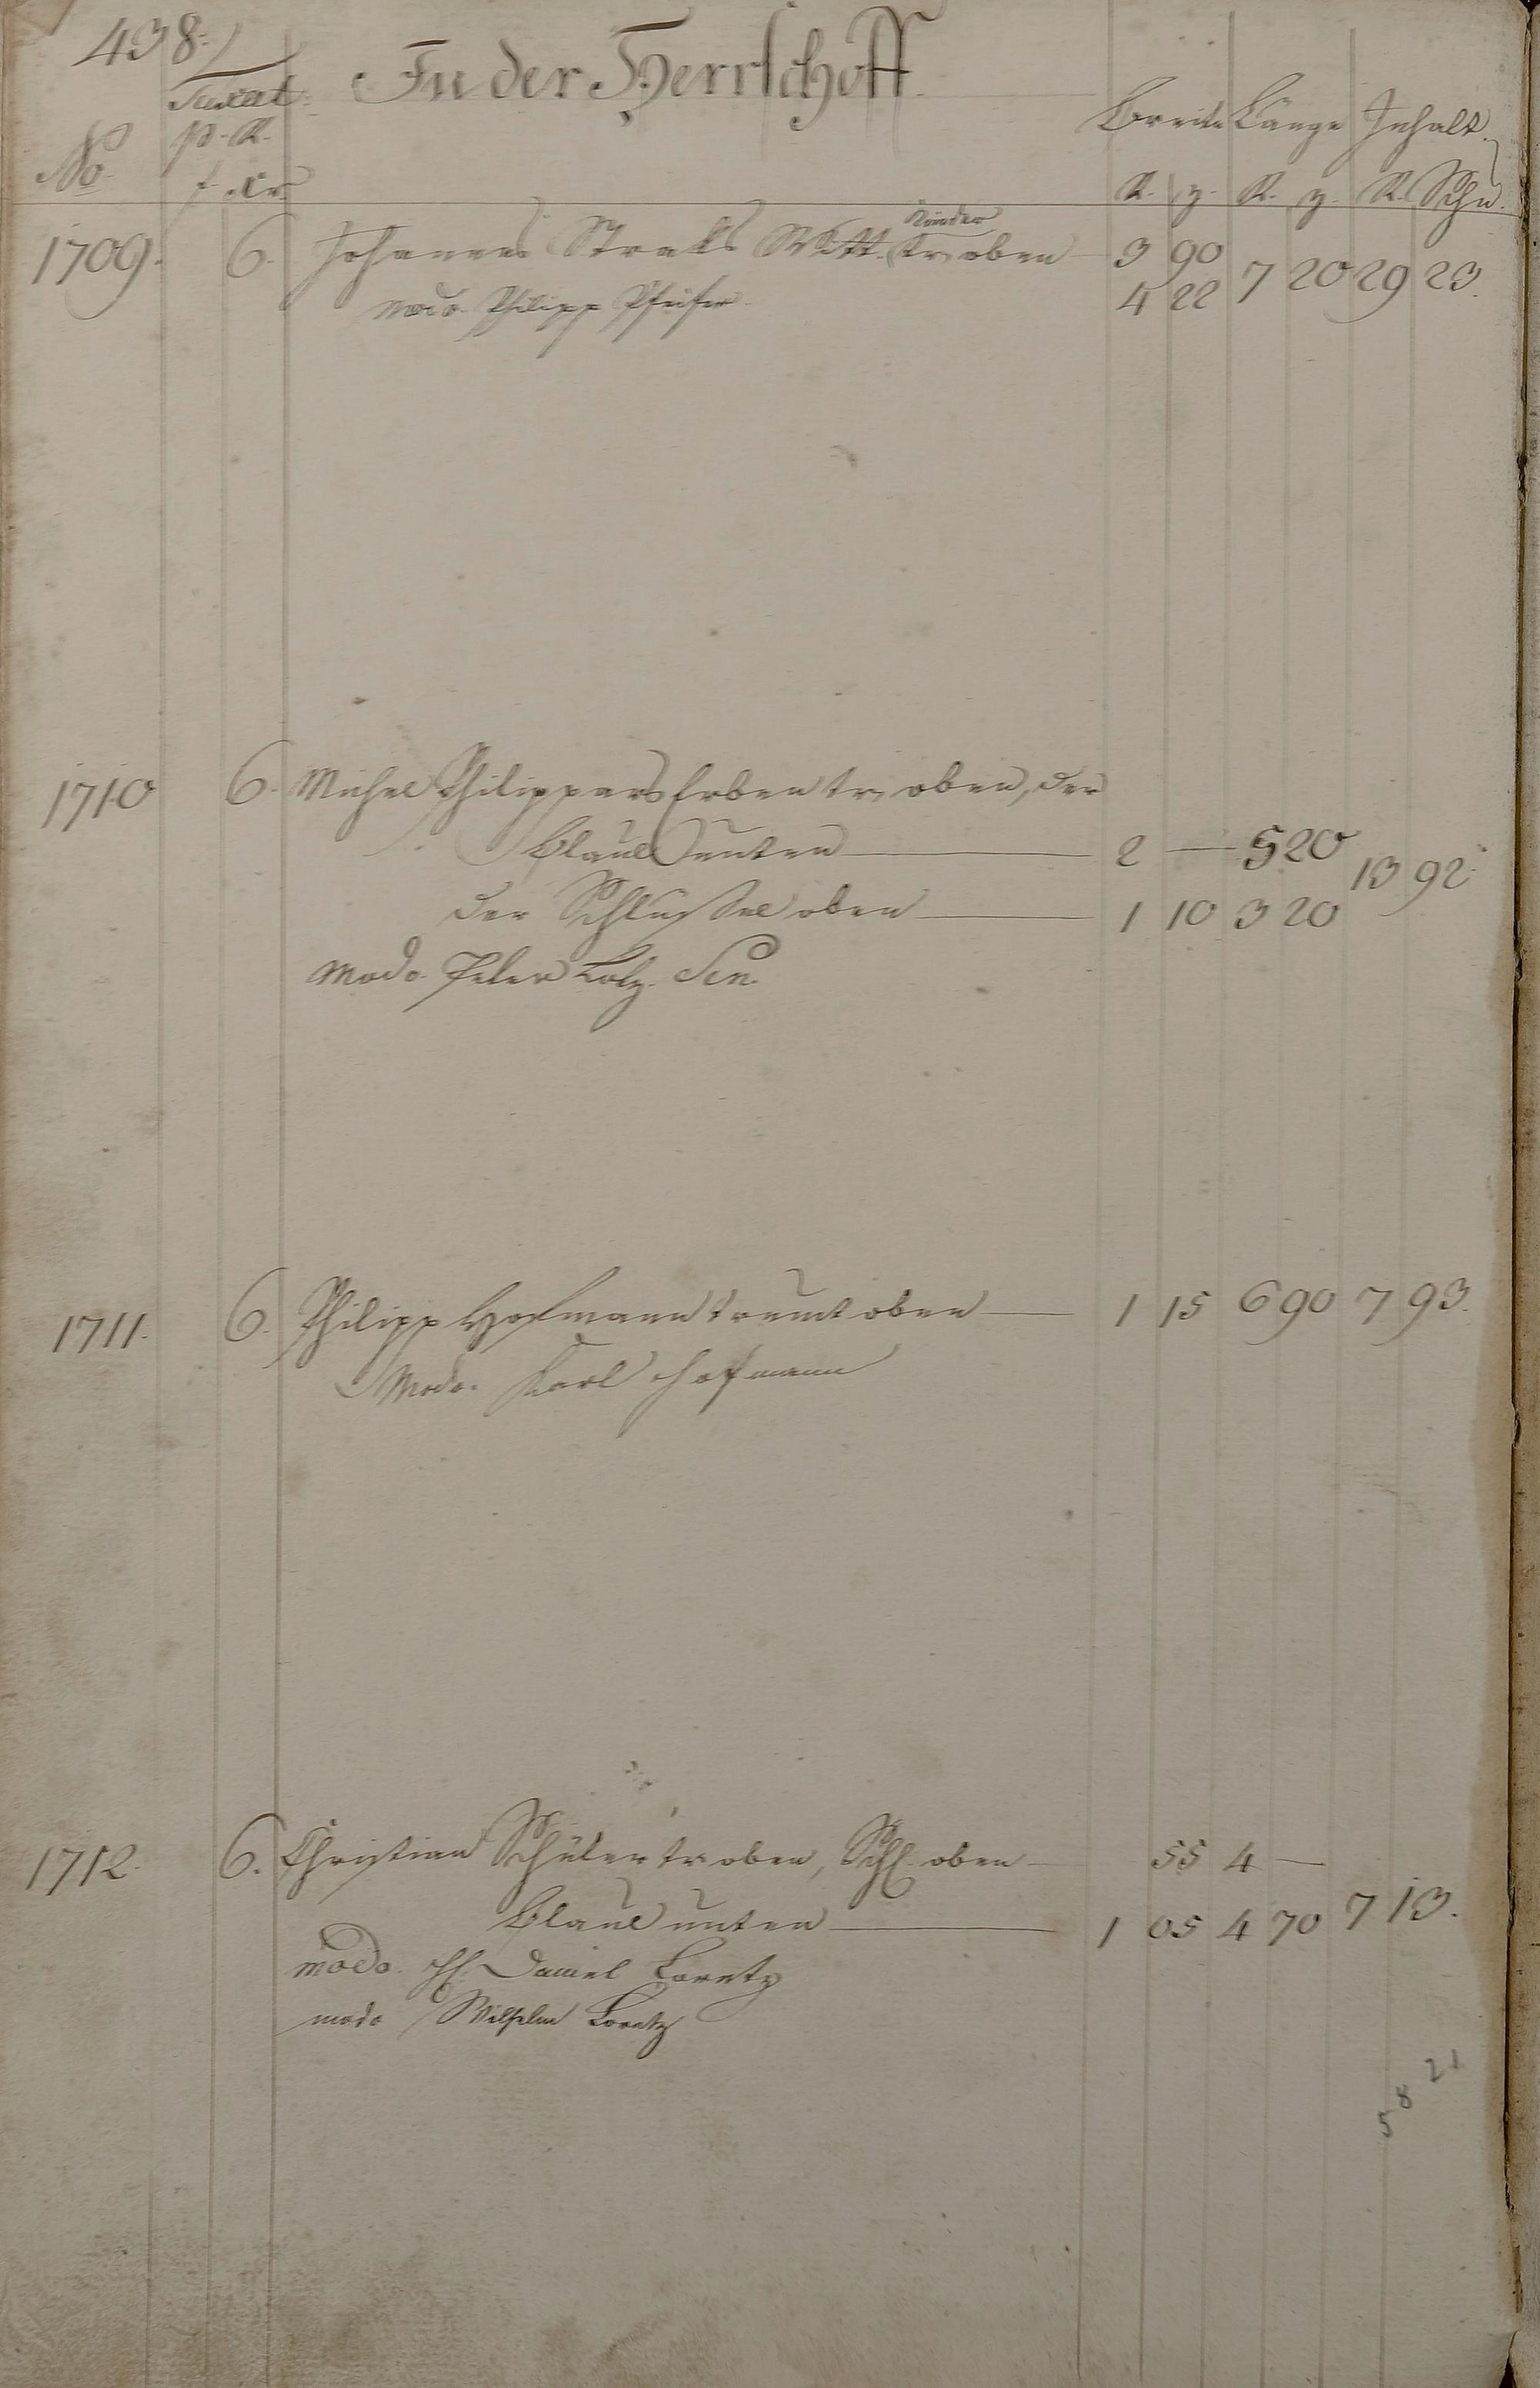 438.
In der Herrschoff
Taxat.
p. R.
No f. Xr.
Breite Länge Inhalt.
R. z. R. z. R. Schu.
Kinder
1709. 6. Johannes Straks Witt. tr. oben 3 90
4 22 7 20 29 23.
modo. Philipp Pfeifer
1710 6. Michel Philippars Erben tr. oben, der
Blaul unten — 2 — 5 20
13 92.
der Schlüssel oben — 1 10 3 20
Modo. Peter Lotz. Sen.
1711. 6. Philipp Hofmann trumt oben — 1 15 6 90 7 93.
Modo. Karl Hofmann
1712. 6. Christian Schüler tr. oben, Schl. oben — 55 4 —
Blaul unten — 1 05 4 70 7 13.
modo. Daniel Loretz
modo Wilhelm Loretz
21
8
5